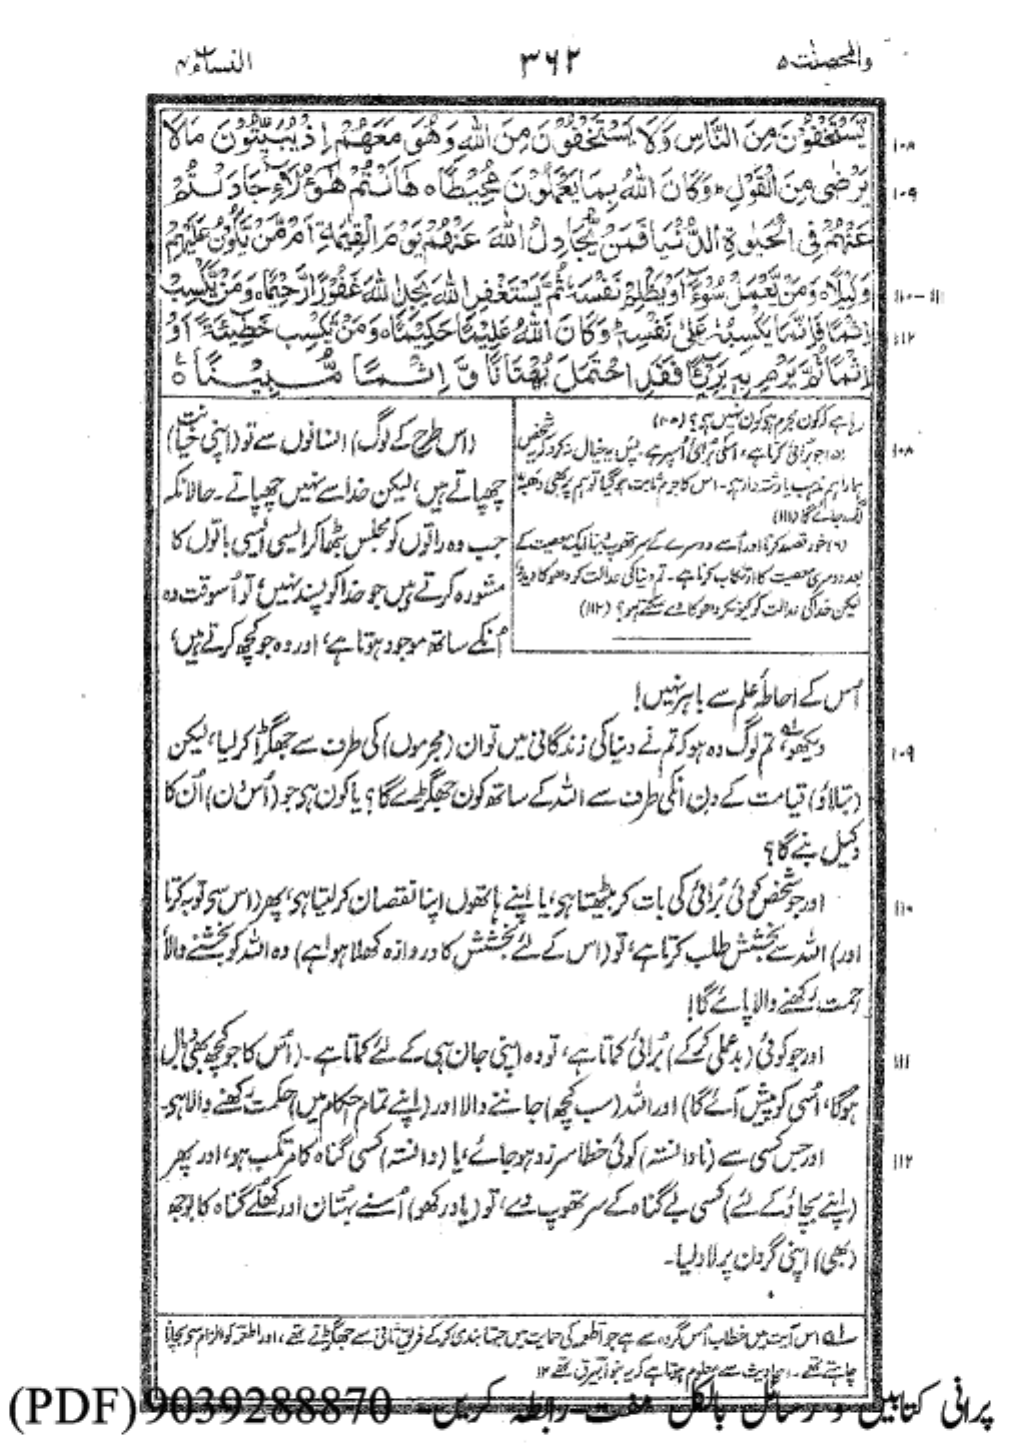 والمحصنٰت ۵
۳۶۲
النساء ۴
یَّسْتَخْفُوْنَ مِنَ النَّاسِ وَلَا یَسْتَخْفُوْنَ مِنَ اللّٰهِ وَهُوَ مَعَهُمْ اِذْ یُبَیِّتُوْنَ مَا لَا
۱۰۸
یَرْضٰی مِنَ الْقَوْلِ ؕ وَكَانَ اللّٰهُ بِمَا یَعْمَلُوْنَ مُحِیْطًا ه هٰۤاَنْتُمْ هٰۤؤُلَآءِ جٰدَلْتُمْ
۱۰۹
عَنْهُمْ فِی الْحَیٰوةِ الدُّنْیَا فَمَنْ یُّجَادِلُ اللّٰهَ عَنْهُمْ یَوْمَ الْقِیٰمَةِ اَمْ مَّنْ یَّكُوْنُ عَلَیْهِمْ
وَكِیْلًا ه وَمَنْ یَّعْمَلْ سُوْٓءًا اَوْ یَظْلِمْ نَفْسَهٗ ثُمَّ یَسْتَغْفِرِ اللّٰهَ یَجِدِ اللّٰهَ غَفُوْرًا رَّحِیْمًا ه وَمَنْ یَّكْسِبْ
۱۱۰-۱۱۱
اِثْمًا فَاِنَّمَا یَكْسِبُهٗ عَلٰی نَفْسِهٖ ؕ وَكَانَ اللّٰهُ عَلِیْمًا حَكِیْمًا ه وَمَنْ یَّكْسِبْ خَطِیْٓئَةً اَوْ
۱۱۲
اِثْمًا ثُمَّ یَرْمِ بِهٖ بَرِیْٓئًا فَقَدِ احْتَمَلَ بُهْتَانًا وَّ اِثْمًا مُّبِیْنًا ه
رہا ہے کہ کون مجرم ہے کون نہیں ہے؟ (۱۰۸)
(۵) جو برائی کرتا ہے، اسکی برائی اُسپر ہے۔ پس یہ خیال نہ کرو کہ یہ شخص
ہمارا ہم مذہب یا رشتہ دار ہے۔ اس کا جرم ثابت ہوگیا تو ہم پر بھی دھبہ
لگ جائے گا (۱۱۱)
(۶) خود قصد کرنا اور اُسے دوسرے کے سر تھوپ دینا ایک معصیت کے
بعد دوسری معصیت کا ارتکاب کرنا ہے۔ تم دنیا کی عدالت کو دھوکا دیدو
لیکن خدا کی عدالت کو کیونکر دھوکا دے سکتے ہو؟ (۱۱۲)
(اس طرح کے لوگ) انسانوں سے تو (اپنی خیانت)
۱۰۸
چھپاتے ہیں، لیکن خدا سے نہیں چھپاتے۔ حالانکہ
جب وہ راتوں کو مجلس بٹھا کر ایسی ایسی باتوں کا
مشورہ کرتے ہیں جو خدا کو پسند نہیں، تو اُسوقت وہ
اُنکے ساتھ موجود ہوتا ہے، اور وہ جو کچھ کرتے ہیں،
اُس کے احاطۂ علم سے باہر نہیں!
دیکھو، تم لوگ وہ ہو کہ تم نے دنیا کی زندگانی میں تو ان (مجرموں) کی طرف سے جھگڑا کر لیا، لیکن
۱۰۹
(بتلاؤ) قیامت کے دن انکی طرف سے اللہ کے ساتھ کون جھگڑے گا؟ یا کون ہے جو (اُس دن) اُن کا
وکیل بنے گا؟
اور جو شخص کوئی بُرائی کی بات کر بیٹھتا ہے، یا اپنے ہاتھوں اپنا نقصان کر لیتا ہے، پھر (اس سے توبہ کرتا
۱۱۰
اور) اللہ سے بخشش طلب کرتا ہے، تو (اس کے لئے بخشش کا دروازہ کھلا ہوا ہے) وہ اللہ کو بخشنے والا
رحمت رکھنے والا پائے گا!
اور جو کوئی (بدعملی کر کے) بُرائی کماتا ہے، تو وہ اپنی جان ہی کے لئے کماتا ہے۔ (اُس کا جو کچھ بھی وبال
۱۱۱
ہوگا، اُسی کو پیش آئے گا) اور اللہ (سب کچھ) جاننے والا اور (اپنے تمام احکام میں) حکمت رکھنے والا ہے۔
اور جس کسی سے (نادانستہ) کوئی خطا سرزد ہو جائے، یا (دانستہ) کسی گناہ کا مرتکب ہو، اور پھر
۱۱۲
(اپنے بچاؤ کے لئے) کسی بے گناہ کے سر تھوپ دے، تو (یاد رکھو) اُسنے بہتان اور کھلے گناہ کا بوجھ
(بھی) اپنی گردن پر لاد لیا۔
لہ اس آیت میں خطاب اُس گروہ سے ہے جو طعمہ کی حمایت میں جتھا بندی کر کے فریق ثانی سے جھگڑتے تھے، اور طعمہ کو الزام سے بچانا
چاہتے تھے۔ احادیث سے معلوم ہوتا ہے کہ یہ بنو اُبیرق تھے ۱۲
پرانی کتابیں و رسائل بالکل مفت رابطہ کریں۔ 9039288870 (PDF)